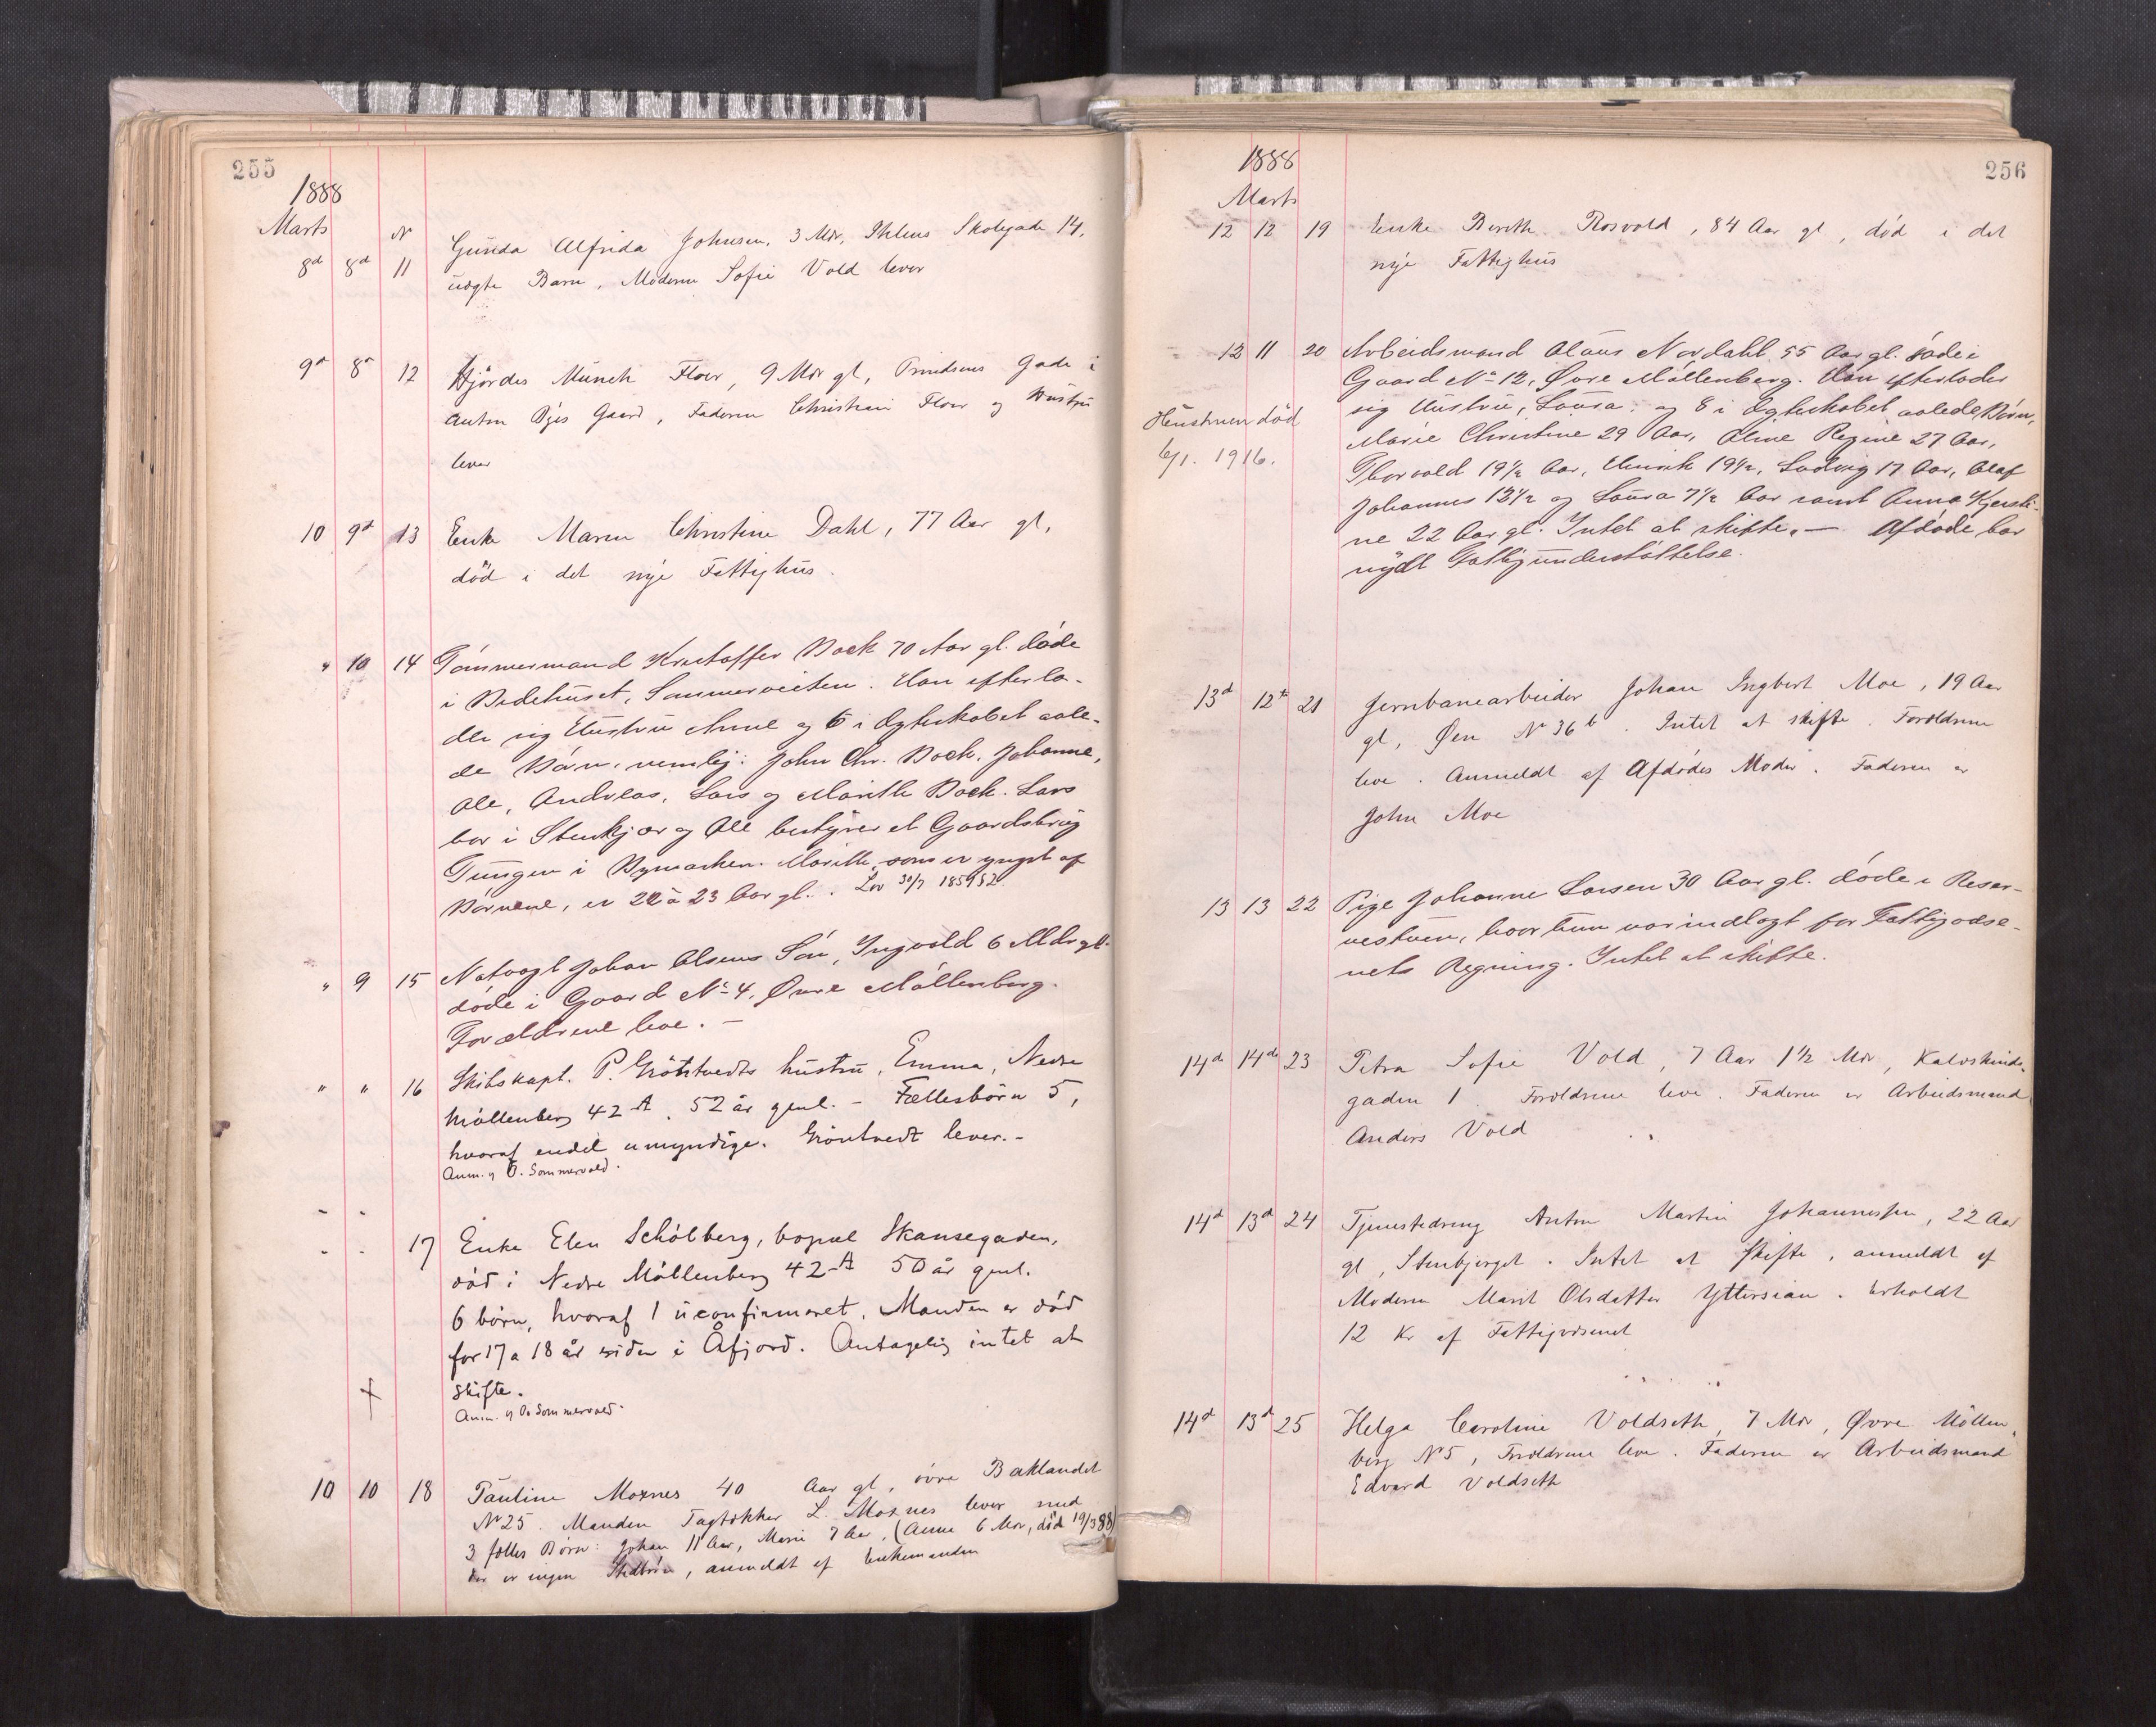 255
1888
Marts
N
8d 8d 11 Gunda Alfrida Johnsen, 3 Mdr, Ihlens Skolegade 14,
uægte Barn, Moderen Sofie Vold lever
9d 8d 12 Hjørdes Münch Floer, 9 Mdr gl, Prindsens Gade i
Anton Øjes Gaard, Faderen Christian Floer og Hustru
lever
10 9d 13 Enke Maren Christine Dahl, 77 Aar gl,
död i det nye Fattighus
" 10 14 Tømmermand Kristoffer Bock 70 Aar gl. døde
i Bedehuset, Sommerveiten. Han efterla-
der sig Hustru Anne og 6 i Ægteskabet avle-
de Børn, nemlig: John Chr. Bock, Johanne,
Ole, Andreas, Lars og Marith Bock. Lars
bor i Stenkjær og Ole bestyrer et Gaardsbrug
Tungen i Bymarken. Marith, som er yngst af
Børnene, er 22 à 23 Aar gl. . Lov 30/7 1851 § 2.
" 9 15 Natvagt Johan Olsens Søn, Ingvald 6 Mdr gl.
døde i Gaard No 4, Øvre Møllenberg.
Forældrene leve. –
" " 16 Skibskapt. P. Gröntvedts hustru, Emma, Nedre
Möllenberg 42 A, 52 år gml. – Fællesbörn 5,
hvoraf endel umyndige. Gröntvedt lever. –
Anm. af O. Sommervold.
" " 17 Enke Elen Schölberg, bopæl Skansegaden,
död i Nedre Möllenberg 42 A 50 år gml.
6 börn, hvoraf 1 uconfirmeret. Manden er död
for 17 a 18 år siden i Åfjord. Antagelig intet at
skifte.
Anm. af O. Sommervold.
10 10 18 Pauline Moxnes 40 Aar gl, övre Baklandet
N 25. Manden Tagtækker L. Moxnes lever med
3 fælles Børn: Johan 11 Aar, Marie 7 Aar, (Anna 6 Mdr, död 19/3 88)
Der er ingen Stedbörn, anmeldt af Enkemanden
256
1888
Marts
12 12 19 Enke Bereth Rosvold, 84 Aar gl, död i det
nye Fattighus
12 11 20 Arbeidsmand Olaus Nordahl 55 Aar gl. døde i
Gaard No 12, Øvre Møllenberg. Han efterlader
sig Hustru, Laura, og 8 i Ægteskabet avlede Børn,
Marie Christine 29 Aar, Oline Regine 27 Aar,
Thorvald 19½ Aar, Henrik 19½, Ludvig 17 Aar, Olaf
Johannes 12½ og Laura 7½ Aar samt Anna Kjersti-
ne 22 Aar gl. Intet at skifte. – Afdøde har
nydt Fattigunderstøttelse.
Hustruen död
6/1. 1916.
13d 12te 21 Jernbanearbeider Johan Ingbert Moe, 19 Aar
gl, Øen N 36 b. Intet at skifte. Forældrene
leve. Anmeldt af Afdødes Moder. Faderen er
John Moe
13 13 22 Pige Johanne Larsen 30 Aar gl. døde i Reser-
vestuen, hvor hun var indlagt for Fattigvæse-
nets Regning. Intet at skifte.
14d 14de 23 Petra Sofie Vold, 7 Aar 1½ Mdr, Kalvskinds-
gaden 1. Forældrene leve. Faderen er Arbeidsmand
Anders Vold
14d 13d 24 Tjenestedreng Anton Martin Johannessen, 22 Aar
gl, Stenbjerget. Intet at skifte, anmeldt af
Moderen Marit Olsdatter Yttersian. Erholdt
12 Kr af Fattigvæsenet
14d 13d 25 Helga Caroline Voldseth, 7 Mdr, Øvre Möllen-
berg N 5, Forældrene leve. Faderen er Arbeidsmand
Edvard Voldseth